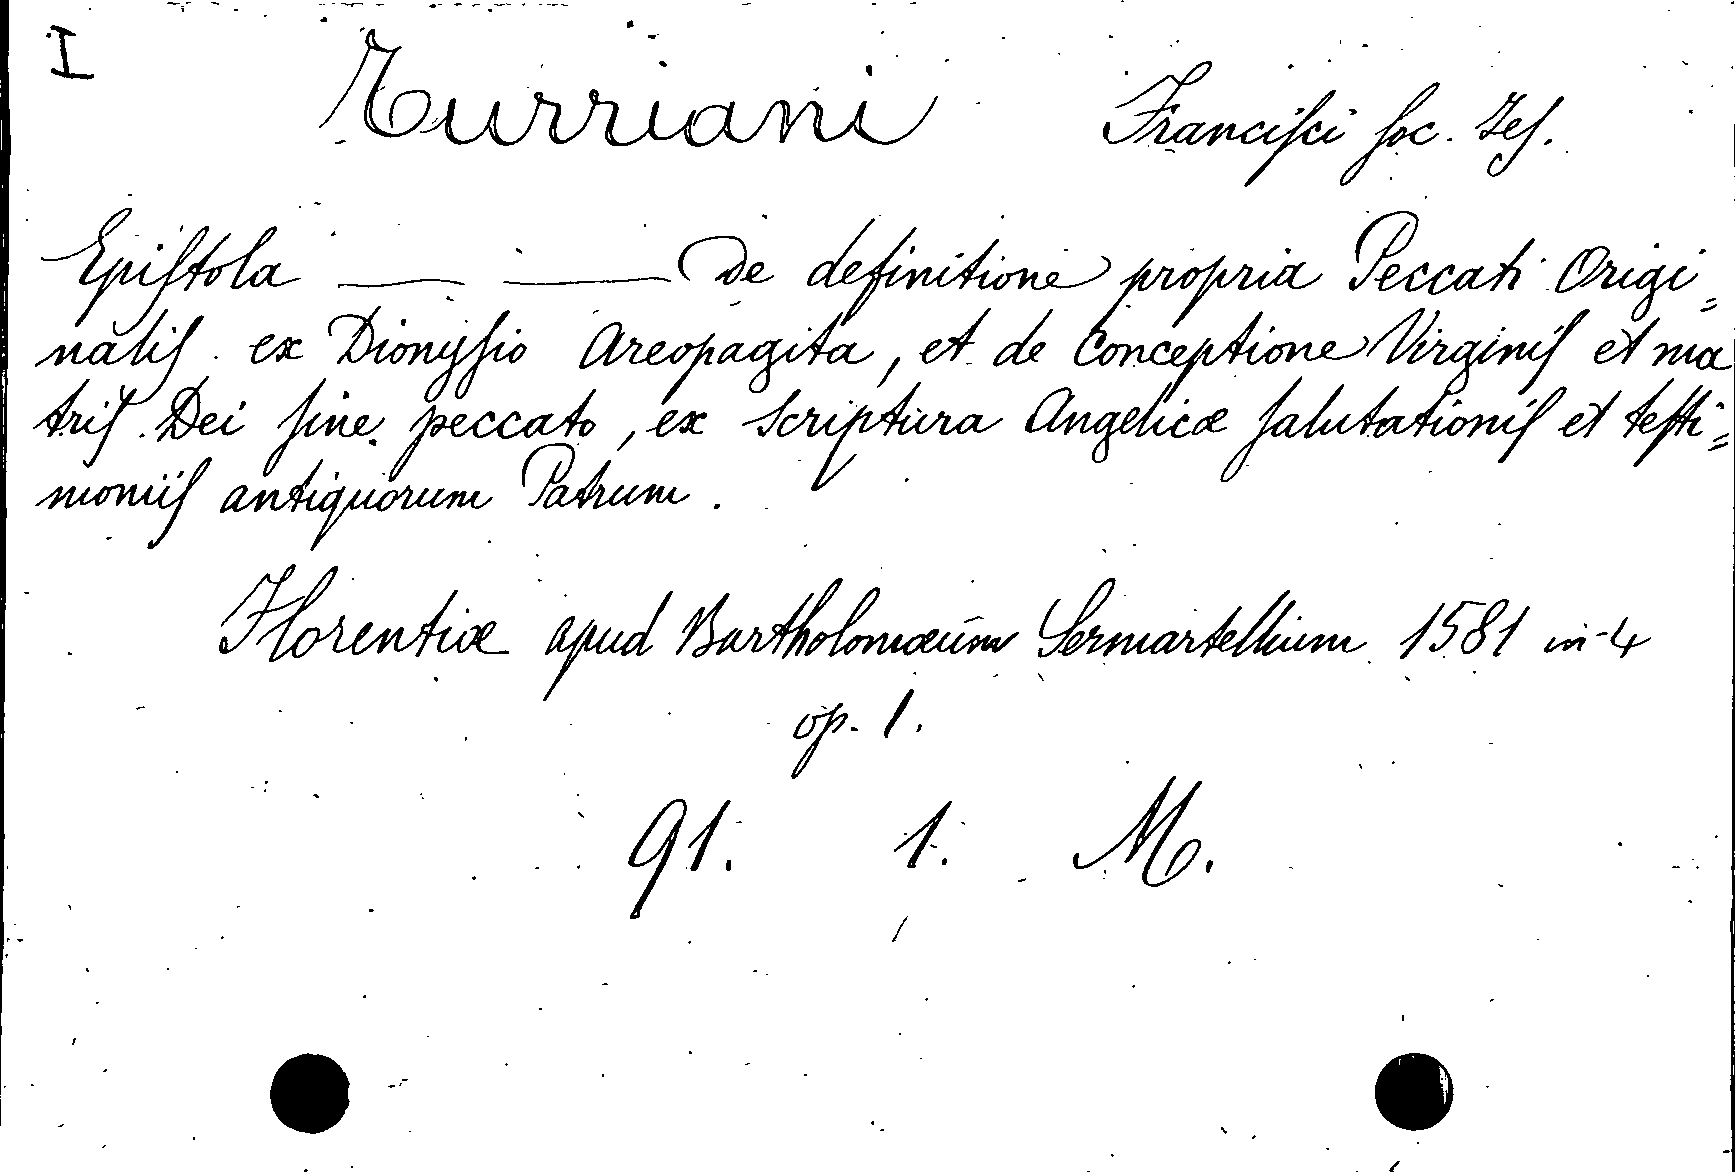 I
Turriani Franciſci ſoc. Jeſ.
Epiſtola ___ ___ De definitione propria Peccati Origi=
naliſ ex Dionyſio Areopagita, et de Conceptione Virginiſ et ma
triſ Dei ſine peccato, ex Scriptura Angelicæ ſalutationiſ et teſti=
moniiſ antiquorum Patrum.
Florentiæ apud Bartholomæum Sermartellium 1581 in-4
op. 1.
91. 1. M.